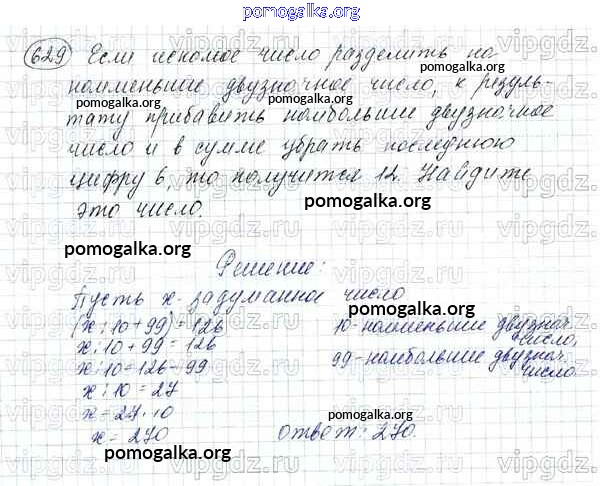 pomogalka.org
629 Если искомое число разделить на
наименьшее двузначное число, к резуль-
pomogalka.org pomogalka.org
тату прибавить наибольшее двузначное
число и в сумме убрать последнюю
цифру 6, то получится 12. Найдите
это число. pomogalka.org
pomogalka.org
Решение:
Пусть x - задуманное число
(x : 10 + 99) = 126 10 - наименьшее двузнач.
x : 10 + 99 = 126 число,
x : 10 = 126 - 99 99 - наибольшее двузнач.
x : 10 = 27 число
pomogalka.org
x = 27 · 10 pomogalka.org
x = 270 ответ: 270.
pomogalka.org pomogalka.org